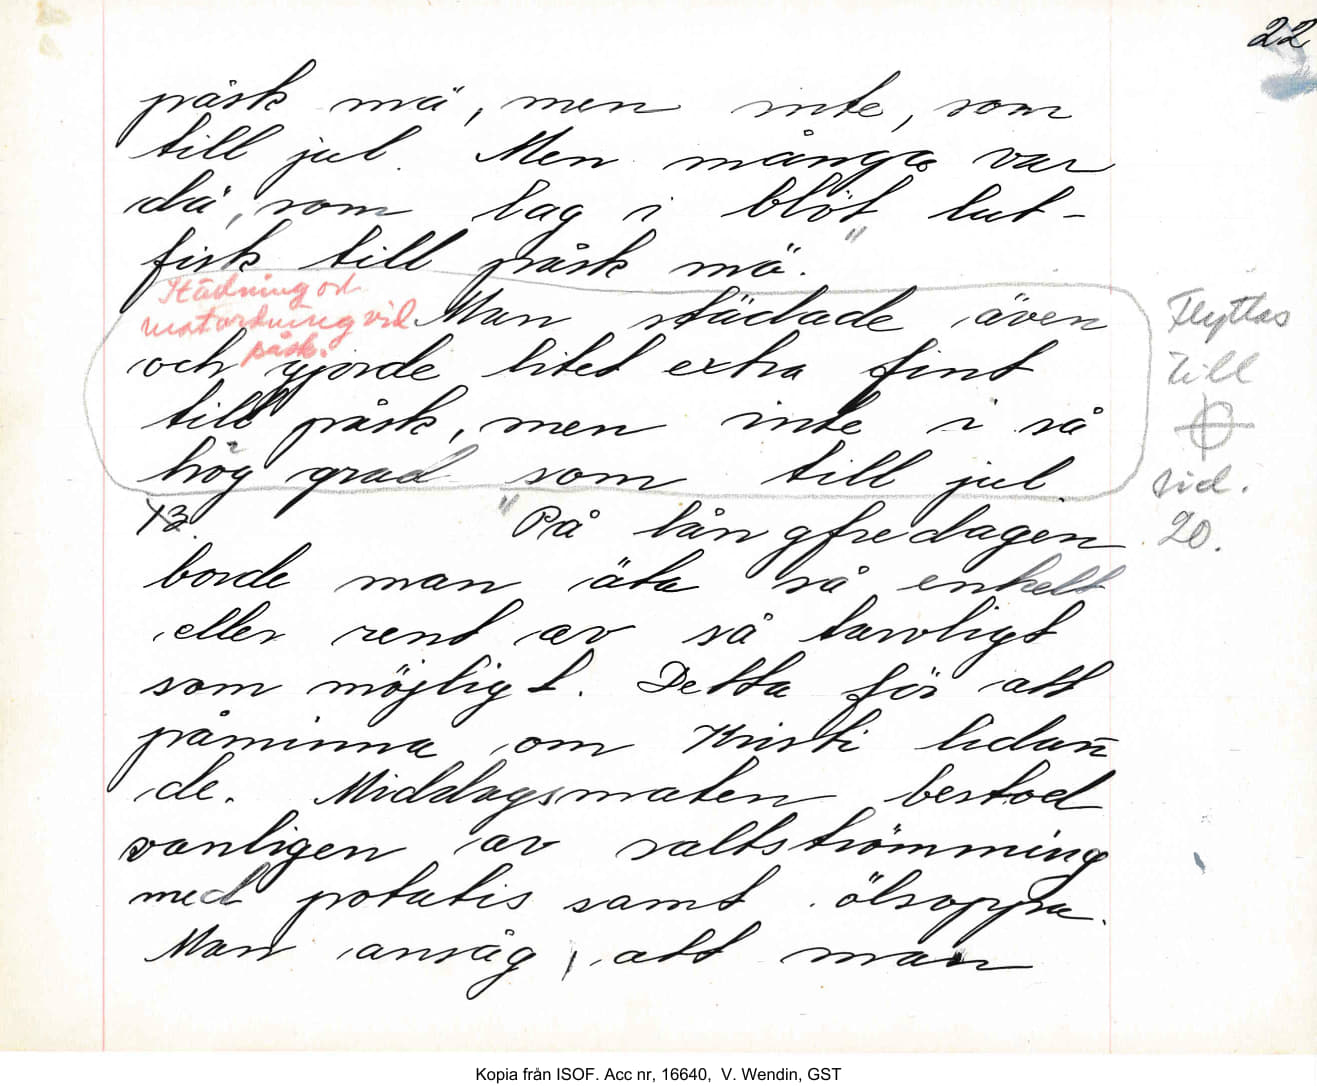 22
påsk mä, men inte, som
till jul. Men många var
dä, som lag i blöt lut-
fisk till påsk mä."
Städning och
matordning vid
påsk.
Man städade även
och gjorde litet extra fint
till påsk, men inte i så
hög grad som till jul.
Flyttas
till
sid.
20.
13. "På långfredagen
borde man äta så enkelt
eller rent av så tarvligt
som möjligt. Detta för att
påminna om Kristi lidan-
de. Middagsmaten bestod
vanligen av saltströmming
med potatis samt ölsoppa.
Man ansåg, att man
Kopia från ISOF. Acc nr, 16640, V. Wendin, GST